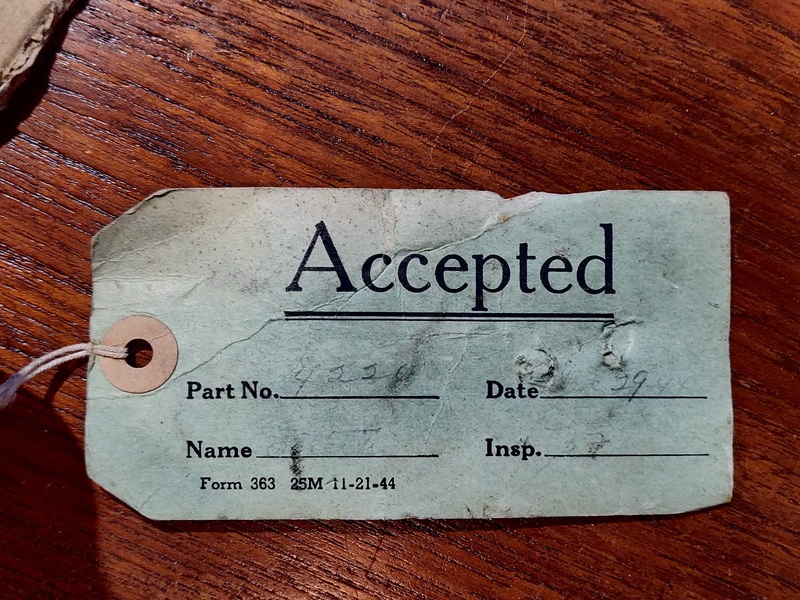 Accepted
Part No. 422 Date 29
Name Insp.
Form 363 25M 11-21-44